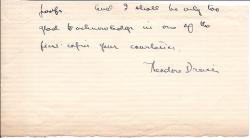 proofs. And I shall be only too
glad to acknowledge in one of the
few copies your courtesies.
Theodore Dreiser